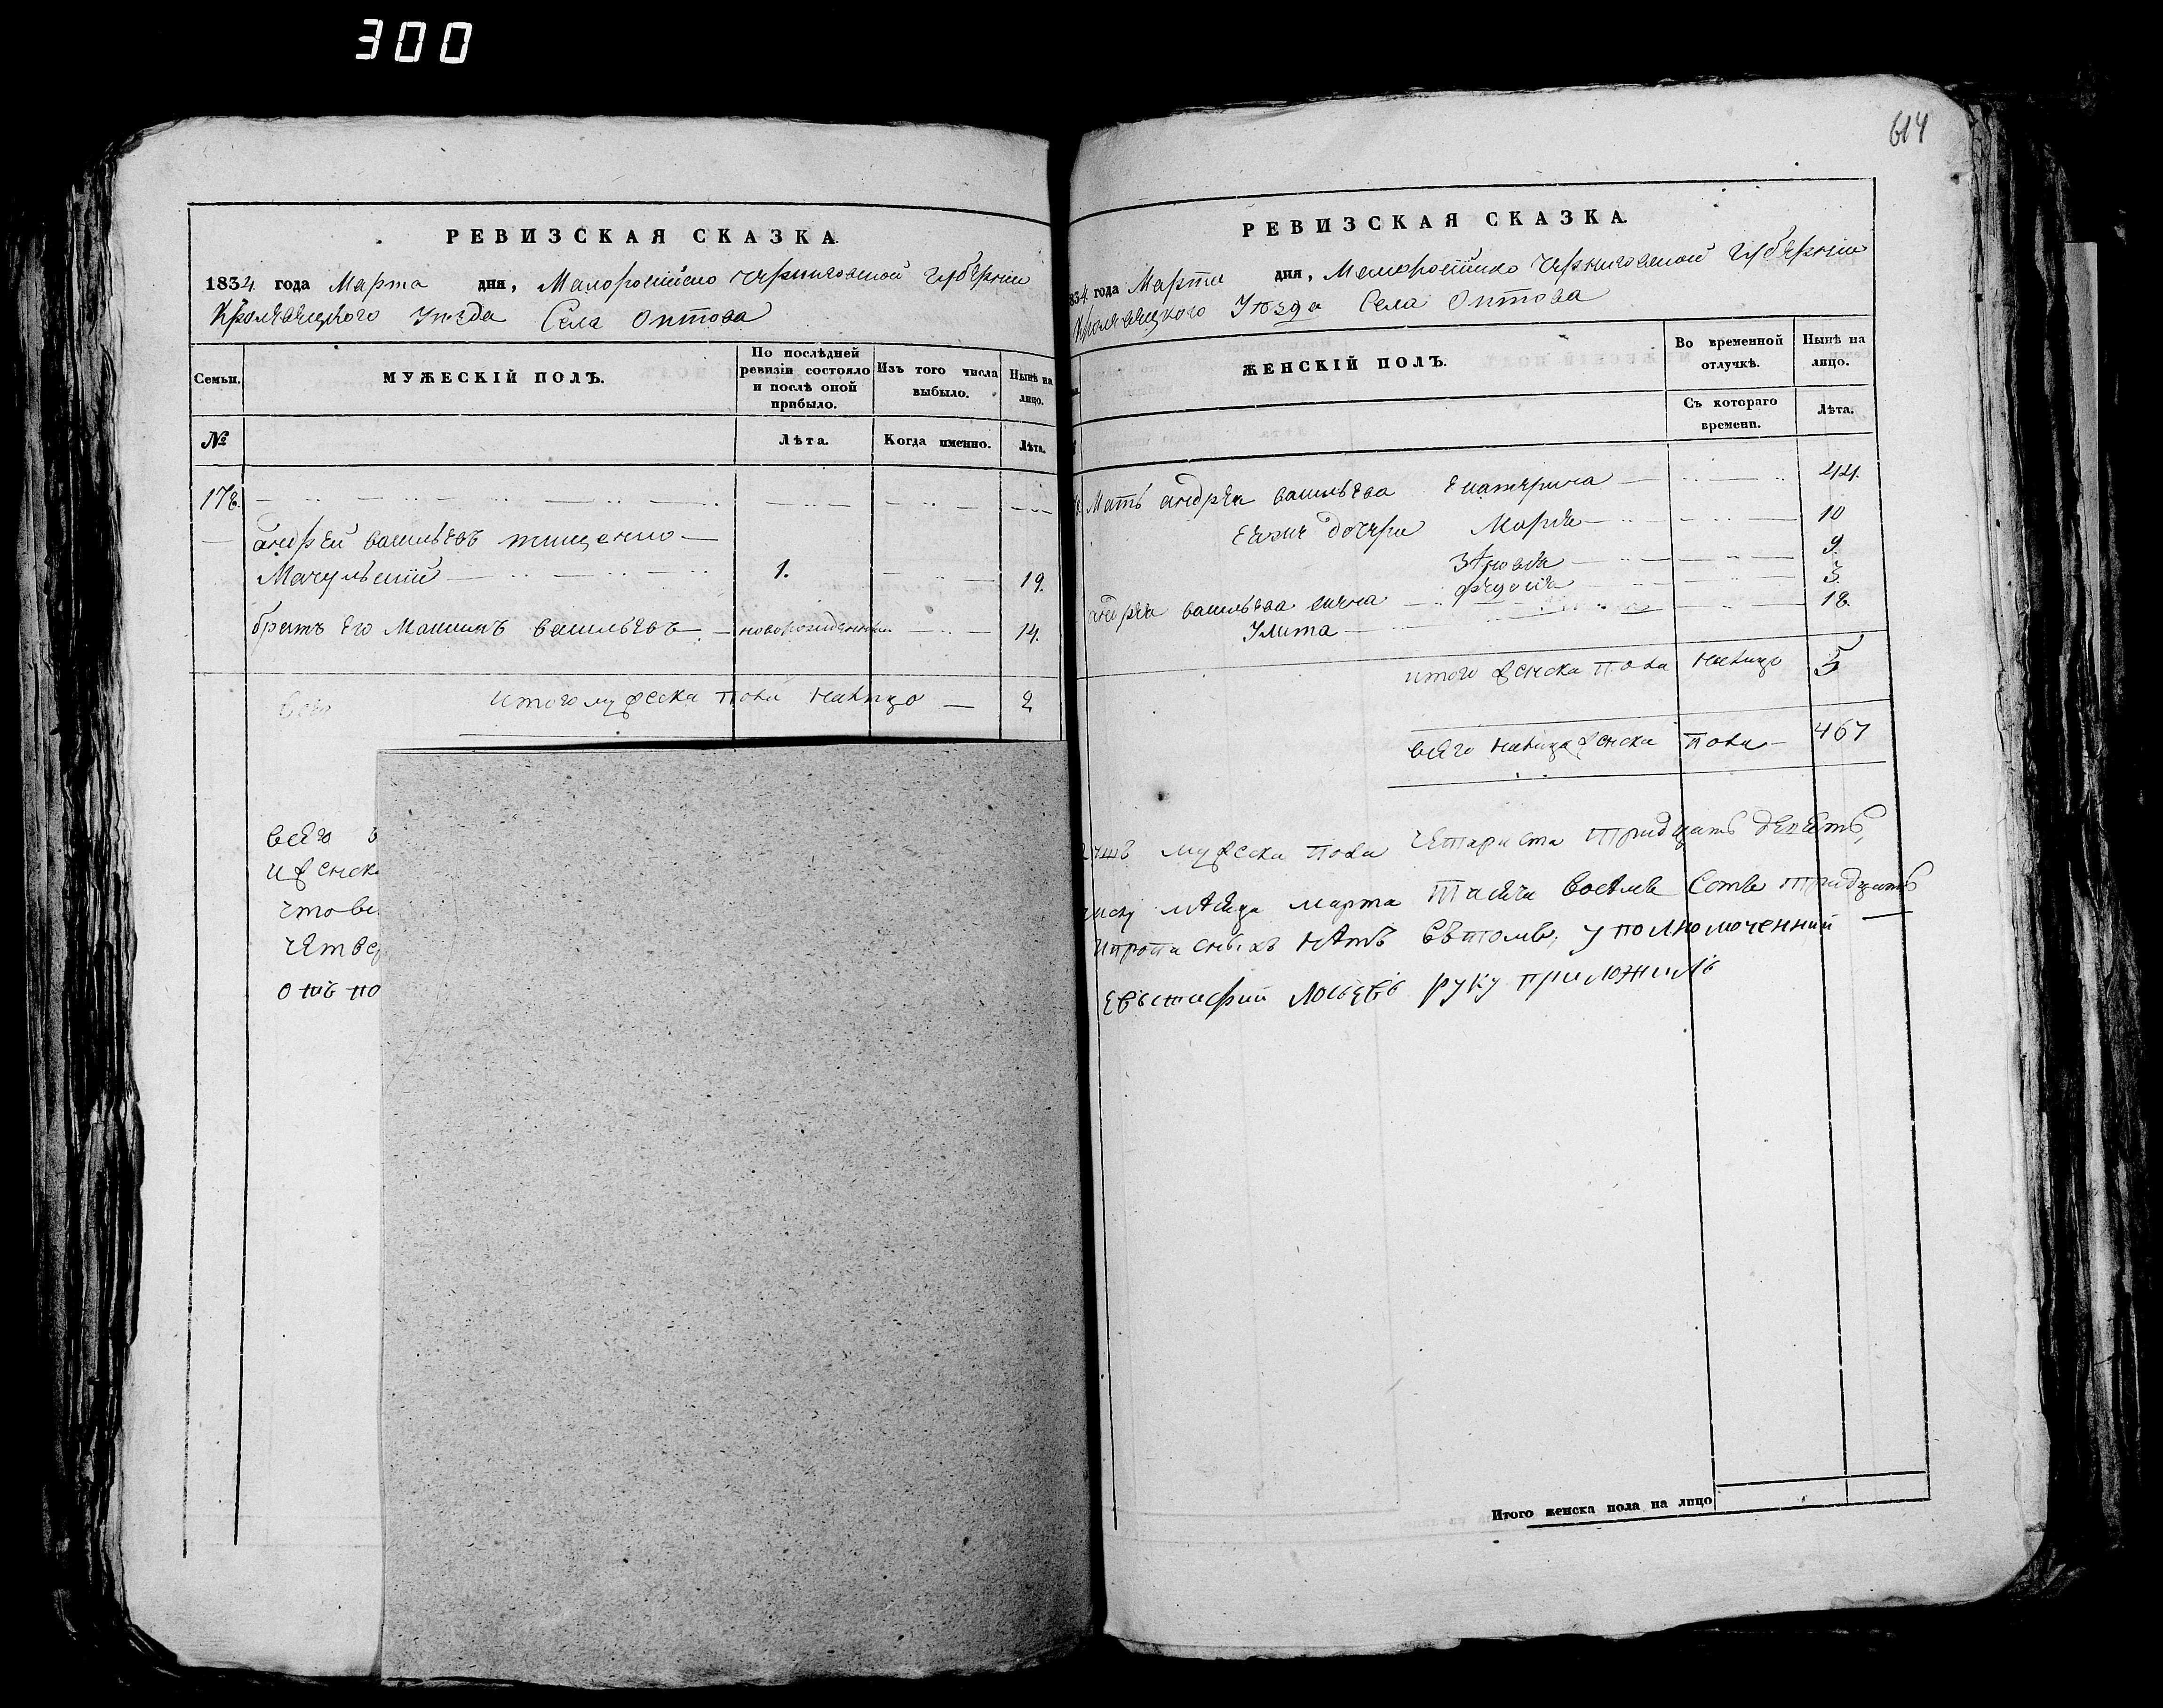 300
614
РЕВИЗСКАЯ СКАЗКА.
1834 года Марта дня, Малороссійско Черниговской Губерніи
Кролевецкого Уезда Села Оптова
Семьи.
МУЖЕСКІЙ ПОЛЪ.
По послѣдней ревизіи состояло и послѣ оной прибыло.
Изъ того числа выбыло.
Нынѣ на лицо.
№
Лѣта.
Когда именно.
Лѣта.
178.
андрей васильевъ тищенко
1. 19.
братъ его Максимъ васильевъ новорожденный 14.
итого мужеска пола налицо 2
всего
всего
четвер
РЕВИЗСКАЯ СКАЗКА.
834 года Марта дня, Малороссійско Черниговской Губерніи
Кролевецкого Уѣзда Села Оптова
ЖЕНСКІЙ ПОЛЪ.
Во временной отлучкѣ.
Нынѣ на лицо.
Съ котораго времени.
Лѣта.
Мать андрея васильева Екатерина 44.
дочери Марія 10
9.
3.
андрея васильева жена
Улита 18.
итого женска пола налицо 5
всего налицо женска пола 467
мужеска пола четариста тридцать
месяца марта тисяча восемъ сотъ тридцать
нѣтъ вътомъ, уполномоченний
руку приложилъ
Итого женска пола на лицо